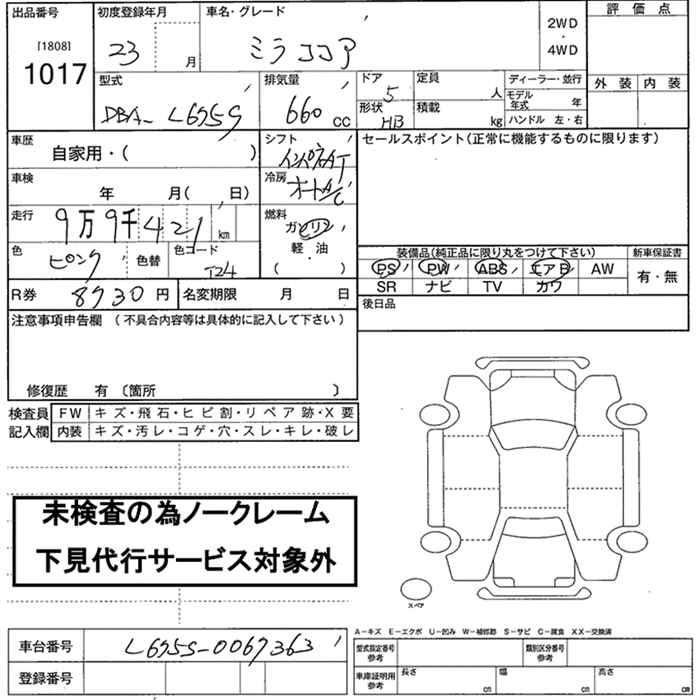 出品番号 初度登録年月 車名・グレード 2WD・4WD 評価点
[1808]
1017 23 月 ミラココア
外装 内装
型式 排気量 ドア 定員 ディーラー・並行
DBA- L675S 660 cc 5 人 モデル年式 年
形状 HB 積載 kg ハンドル 左・右
車歴 自家用・( ) シフト インパネAT セールスポイント(正常に機能するものに限ります)
車検 年 月( 日) 冷房 オートA/C
走行 9万9千421km 燃料 ガソリン
軽・油
( )
色 ピンク 色替 色コード T24
装備品(純正品に限り丸をつけて下さい) 新車保証書
PS PW ABS エアB AW 有・無
SR ナビ TV カワ
R券 8730円 名変期限 月 日 後日品
注意事項申告欄 (不具合内容等は具体的に記入して下さい)
修復歴 有 〔箇所 〕
検査員 FW キズ・飛石・ヒビ割・リペア跡・X要
記入欄 内装 キズ・汚レ・コゲ・穴・スレ・キレ・破レ
未検査の為ノークレーム
下見代行サービス対象外
スペア
A−キズ E−エクボ U−凹み W−補修跡 S−サビ C−腐食 XX−交換済
車台番号 L675S-0067363 型式指定番号参考 類別区分番号参考
登録番号 車庫証明用参考 長さ cm 幅 cm 高さ cm